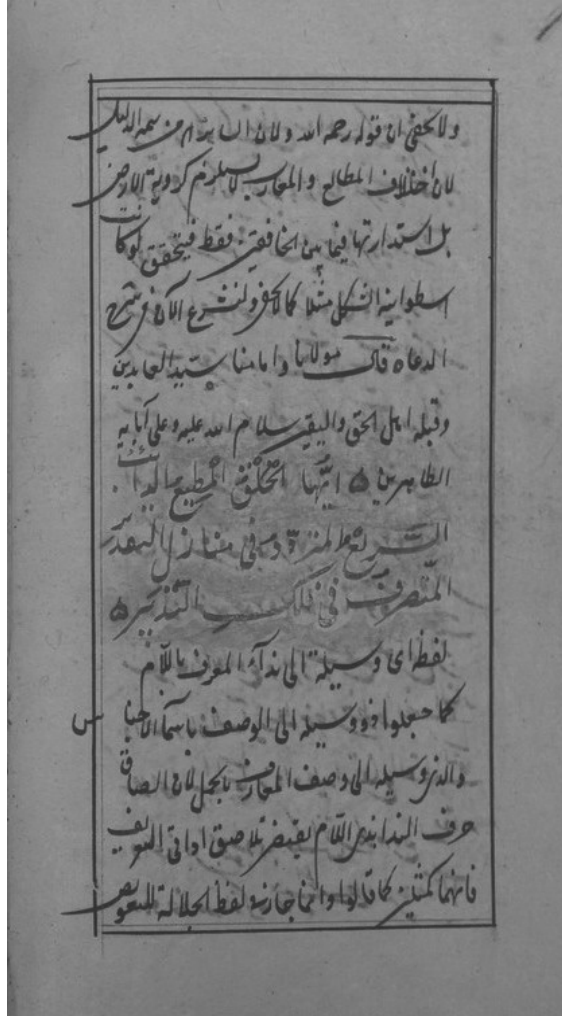 ولا يخفى ان قوله رحمه الله ولان السابق من
لان اختلاف المطالع والمغارب لا يستلزم كروية الارض
بل استدارتها فيما بين الخافقين فقط فيتحقق لو كانت
اسطوانية الشكل مثلا كما لا يخفى ولنشرع الآن في شرح
الدعاء قال مولانا وامامنا سيد العابدين
وقبلة اهل الحق واليقين سلام الله عليه وعلى آبائه
الطاهرين ايّها الخلق المطيع الدائب
السريع المتردد في منازل التقدير
المتصرف في فلك التدبير
لفظة اى وسيلة الى نداء المعرف باللام
كما جعلوا ذو وسيلة الى الوصف باسماء الاجناس
والذى وسيلة الى وصف المعارف بالجمل لان الصاق
حرف النداء بذى اللام يقتضى تلاصق اداتى التعريف
فانهما كمثلين كما قالوا وانما جاز فى لفظ الجلالة للتعويض